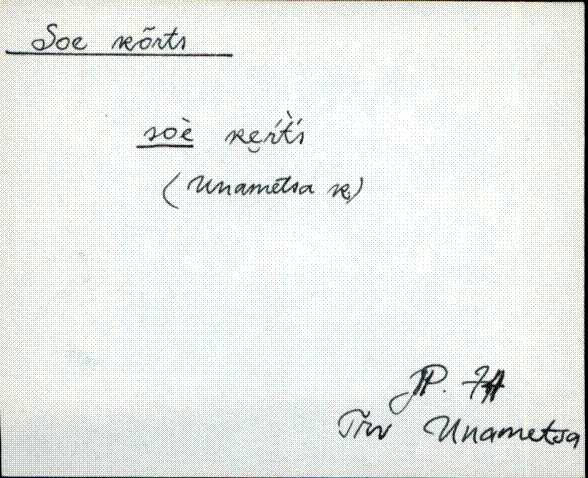 Soe kõrts
soè
(Unametsa k)
JP.
Trv Unametsa